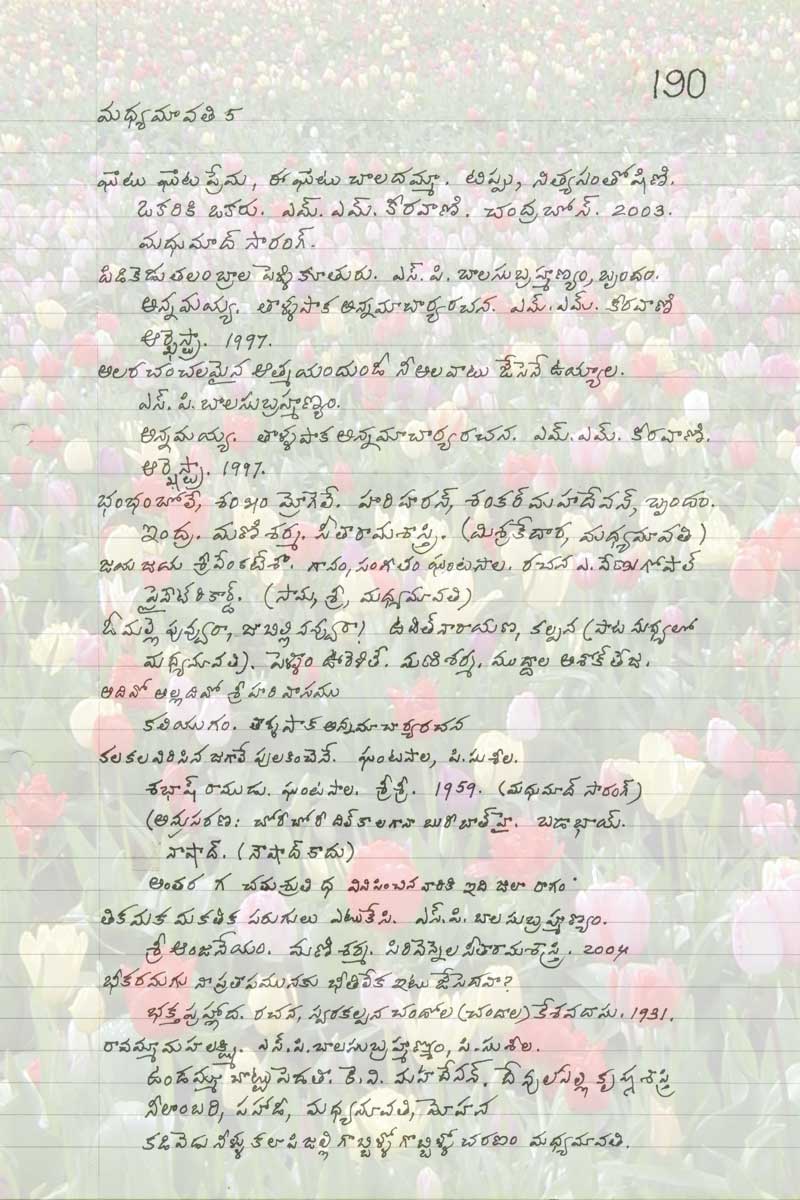 190
మధ్యమావతి 5
ఘాటు ఘాటు ప్రేమ, ఈ ఘాటు చాలదమ్మా. టిప్పు, నిత్యసంతోషిణి.
ఒకరికి ఒకరు. ఎమ్. ఎమ్. కీరవాణి. చంద్రబోస్. 2003.
మధుమాద్ సారంగ్.
పిడికెడు తలంబ్రాల పెళ్ళికూతురు. ఎస్. పి. బాలసుబ్రహ్మణ్యం, బృందం.
అన్నమయ్య. తాళ్ళపాక అన్నమాచార్య రచన. ఎమ్. ఎమ్. కీరవాణి
ఆర్కెస్ట్రా. 1997.
అలర చంచలమైన ఆత్మయందుండ నీ అలవాటు జేసెనే ఉయ్యాల.
ఎస్. పి. బాలసుబ్రహ్మణ్యం.
అన్నమయ్య. తాళ్ళపాక అన్నమాచార్య రచన. ఎమ్. ఎమ్. కీరవాణి.
ఆర్కెస్ట్రా. 1997.
భంభంబోలే, శంఖం మ్రోగెలే. హరిహరన్, శంకర్ మహదేవన్, బృందం.
ఇంద్ర. మణిశర్మ. సీతారామశాస్త్రి. (మిశ్రకేదార, మధ్యమావతి)
జయ జయ శ్రీ వేంకటేశా. గానం, సంగీతం ఘంటసాల. రచన ఎ. వేణుగోపాల్
ప్రైవేట్ రికార్డ్. (సామ, శ్రీ, మధ్యమావతి)
ఓ మల్లె పువ్వురా, జాబిల్లి నవ్వురా! ఉదిత్ నారాయణ, కల్పన (పాట మధ్యలో
మధ్యమావతి). పెళ్ళాం ఊరెళితే. మణిశర్మ. ముద్దాల అశోక్ తేజ.
అదివో అల్లదివో శ్రీ హరి వాసము
కలియుగం. తాళ్ళపాక అన్నమాచార్య రచన
కలకల విరిసిన జగాలే పులకించెనే. ఘంటసాల, పి. సుశీల.
శభాష్ రాముడు. ఘంటసాల. శ్రీశ్రీ. 1959. (మధుమాద్ సారంగ్)
(అనుసరణ: చోరీ చోరీ దిల్ కా లగానా బురీ బాత్ హై. బడా భాయ్.
నాషాద్. (నౌషాద్ కాదు)
అంతర గ చతుశ్రుతి ధ వినిపించిన వారికి ఇది జిలా రాగం
తికమక మకతిక పరుగులు ఎటుకేసి. ఎస్. పి. బాలసుబ్రహ్మణ్యం.
శ్రీ ఆంజనేయం. మణిశర్మ. సిరివెన్నెల సీతారామశాస్త్రి. 2004
భీకరమగు నా ప్రతాపమునకు భీతిలేక ఇటు జేసెదవా?
భక్త ప్రహ్లాద. రచన, స్వరకల్పన చందోల (చందాల) కేశవదాసు. 1931.
రావమ్మా మహలక్ష్మి. ఎస్. పి. బాలసుబ్రహ్మణ్యం, పి. సుశీల.
ఉండమ్మా బొట్టు పెడతా. కె. వి. మహదేవన్. దేవులపల్లి కృష్ణశాస్త్రి
నీలాంబరి, పహాడీ, మధ్యమావతి, మోహన
కడివెడు నీళ్ళు కలాపి జల్లి గొబ్బిళ్ళో గొబ్బిళ్ళో చరణం మధ్యమావతి.